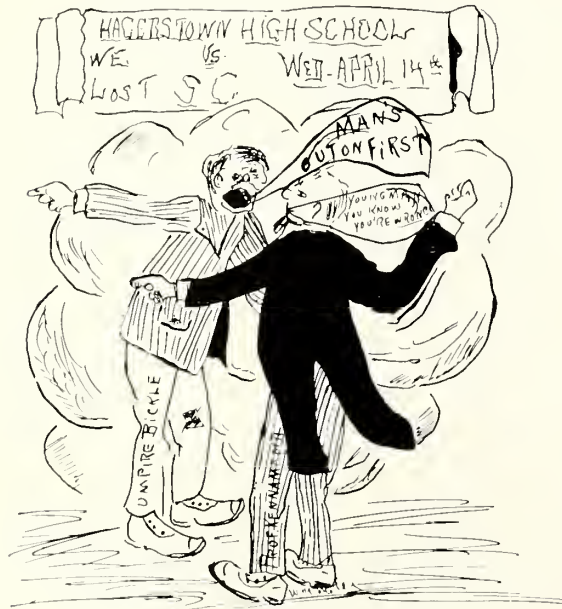 HAGERSTOWN HIGH SCHOOL
WE VS. WED-APRIL 14th
LOST S C.
MAN'S
OUT ON FIRST
YOUNG MAN
YOU KNOW
YOU'RE WRONG
UMPIRE BICKLE